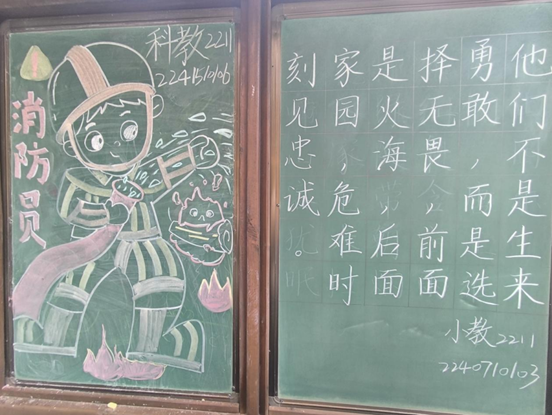 科教2211
2241510106
消防员
他们不是生来
勇敢，而是选
择无畏，前面
是火海，后面
家园危难时
刻见忠诚。
小教2211
2240710103